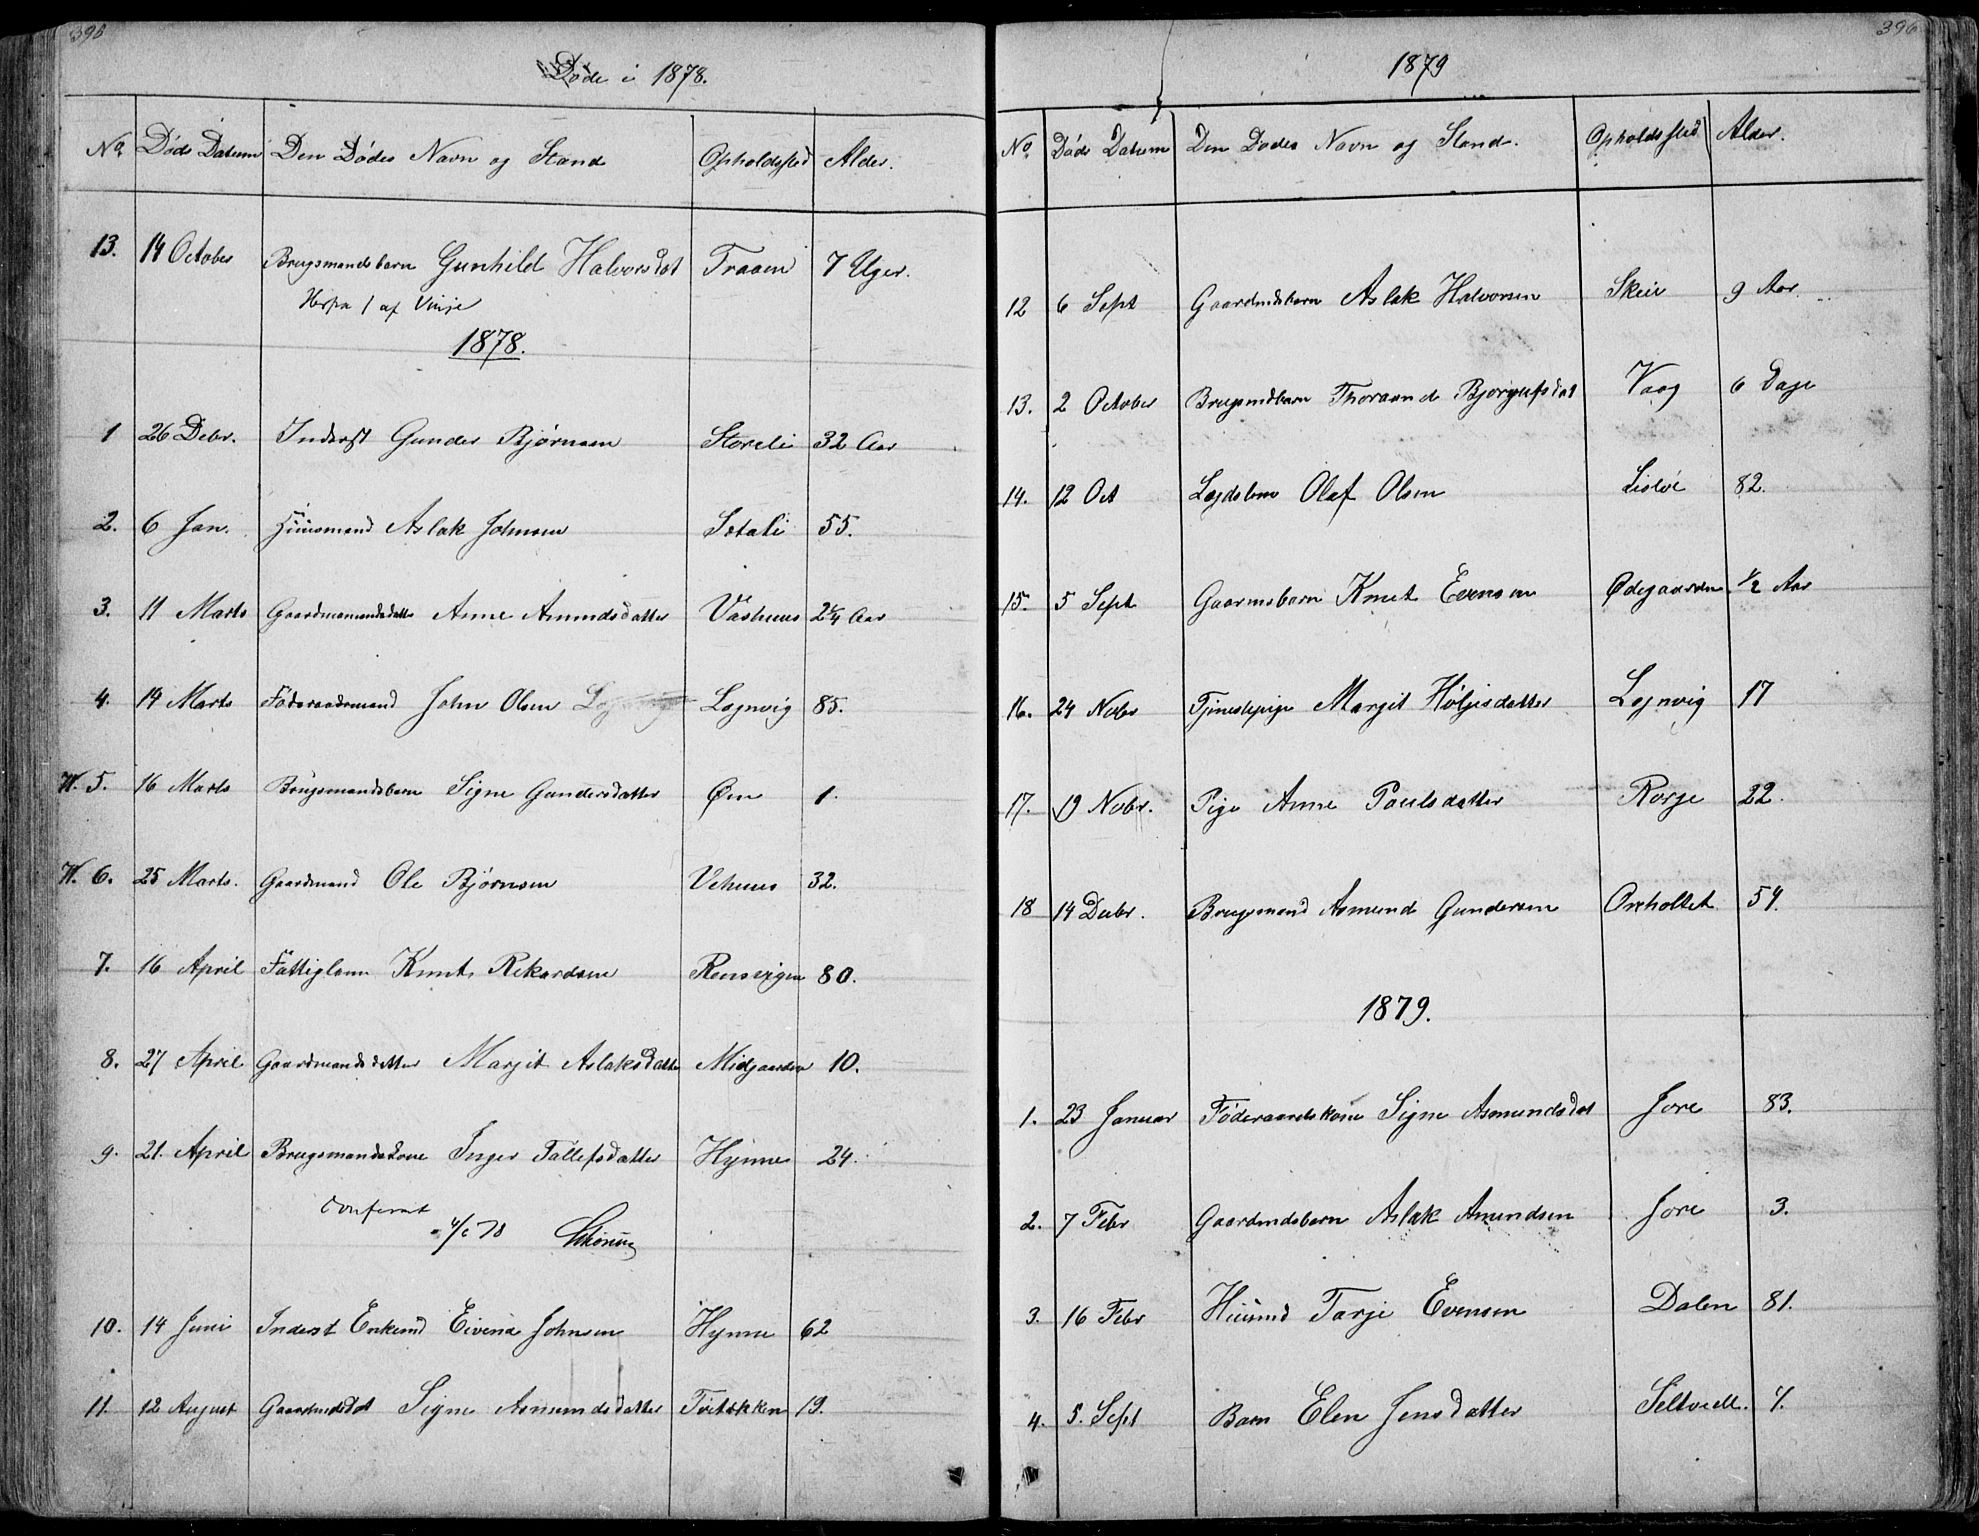 395
Døde i 1878.
No. Døds Datum Den Dødes Navn og Stand Opholdssted Alder.
13. 14 October Brugsmandsbarn Gunhild Halvorsdat Traaen 7 Uger.
af Vinje
1878.
1 26 Debr. Inderst Gunder Bjørnsen Storeli 32 Aar
2. 6 Jan. Huusmand Aslak Johnsen Sotali 55.
3. 11 Marts Gaardmandsdatter Anne Amundsdatter Vashuus 2¼ Aar
4. 14 Marts Føderaadsmand John Olsen Lognvig 85.
N. 5. 16 Marts Brugsmandsbarn Signe Gundersdatter Øen 1.
N. 6. 25 Marts. Gaardmand Ole Bjørnsen Vehuus 32.
7. 16 April Fattiglem Knut Rikardsen 80.
8. 27 April Gaardmandsdatter Margit Aslaksdatter Midgaarden 10.
9. 21. April Brugsmandskone Inger Tallefsdatter Hynne 24.
Conferert
78
10. 14 Juni Inderst Enkemd Eivind Johnsen Hynne 62
11. 12 August Gaardmdsdat Signe Asmundsdatter Tveitækken 19.
396
1879
No. Døds Datum Den Dødes Navn og Stand. Opholdssted Alder.
12 6 Sept Gaardmdsbarn Aslak Halvorsen Skeie 9 Aar.
13. 2 October Brugsmdbarn Thoraand Bjorgulfsdat Vaag 6 Dage
14. 12 Oct Lægdslem Olaf Olsen 82.
15. 5 Sept Gaarmsbarn Knut Evensen Ødegaarden ½ Aar
16. 24 Nobr Tjenestepige Margit Høljesdatter Lognvig 17
17. 19 Nobr. Pige Anne Paulsdatter Rorge 22.
18 14 Debr. Brugsmand Asmund Gundersen Oxholtet 54.
1879.
1. 23 Januar Føderaadskone Signe Asmundsdat Jore 83.
2. 7 Febr Gaardmdsbarn Aslak Amundsen Jore 3.
3. 16 Febr Huusmd Tarje Evensen Dalen 81.
4. 5. Sept Barn Elen Jensdatter Seltveit.